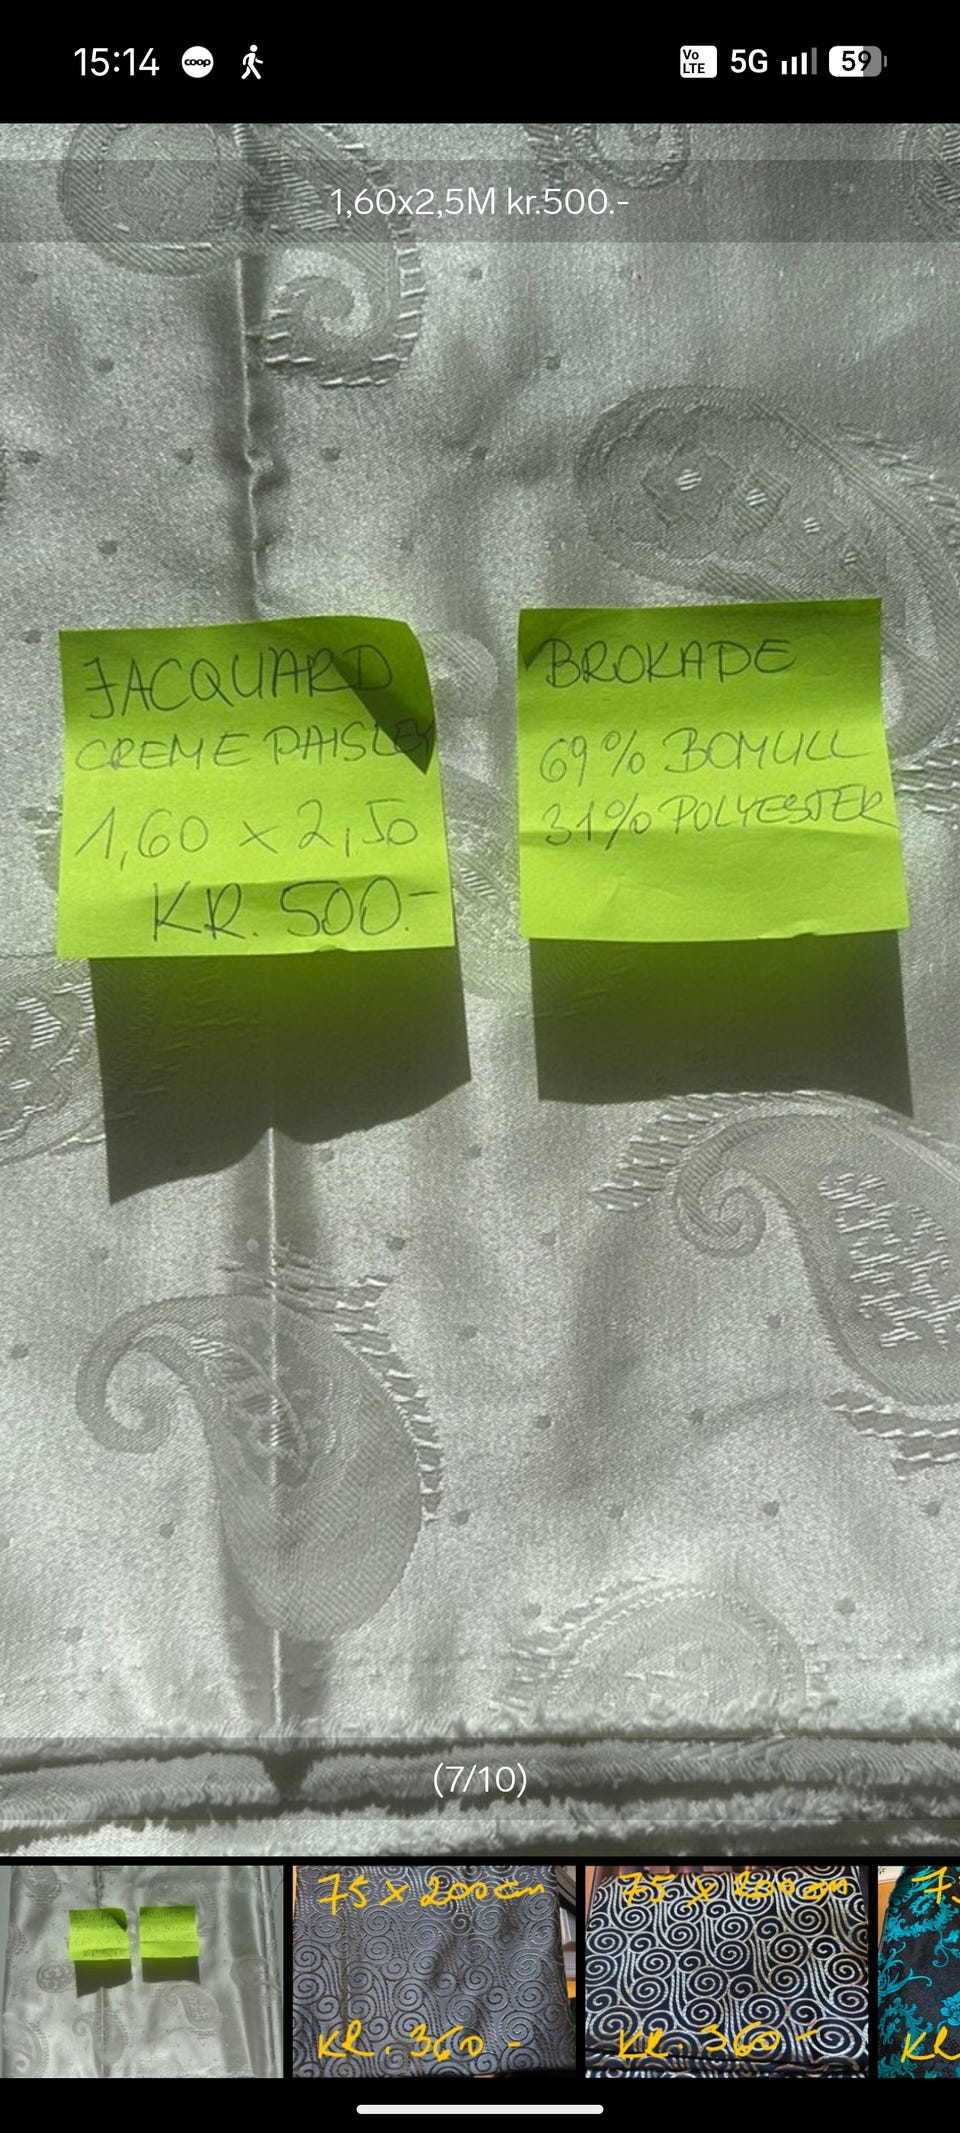 15:14 coop Vo LTE 5G 59
1,60x2,5M kr.500.-
JACQUARD
CREME PAISLEY
1,60 x 2,50
KR. 500.-
BROKADE
69% BOMULL
31% POLYESTER
(7/10)
75 x 200cm
KR. 360 -
75 x 200cm
KR. 360 -